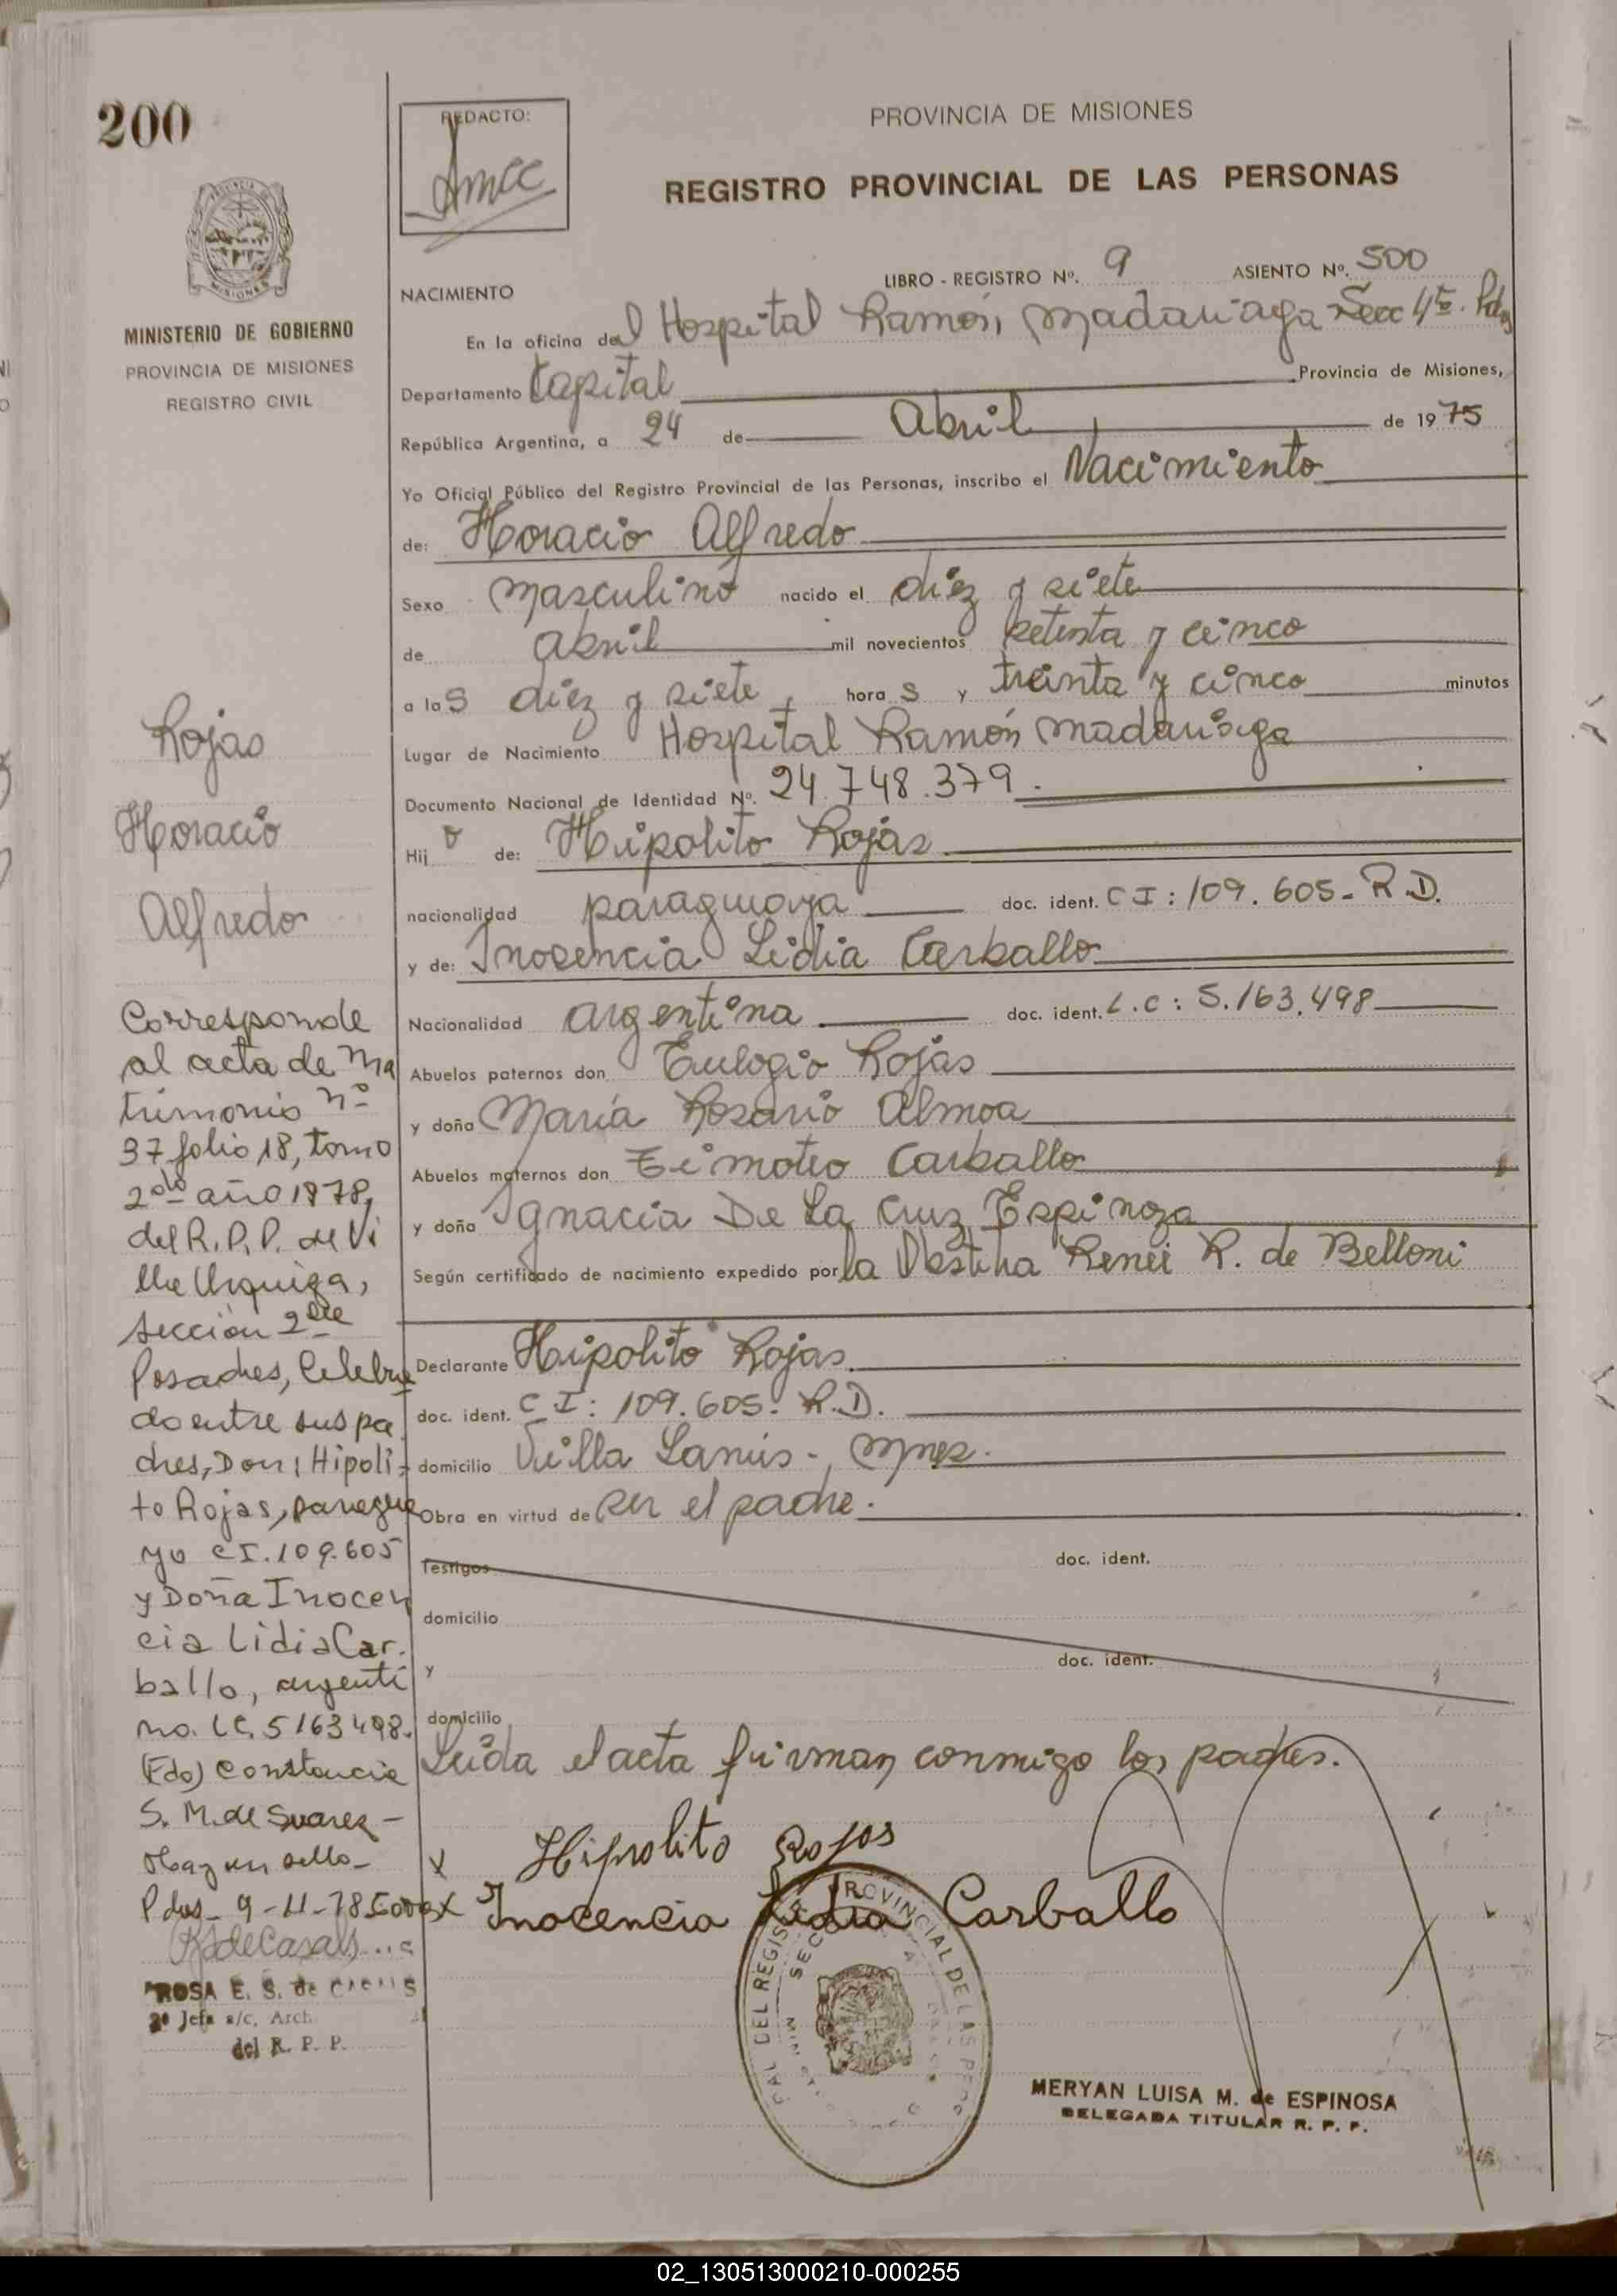 200
REDACTO:
PROVINCIA DE MISIONES
REGISTRO PROVINCIAL DE LAS PERSONAS
MINISTERIO DE GOBIERNO
PROVINCIA DE MISIONES
REGISTRO CIVIL
LIBRO - REGISTRO Nº. 9 ASIENTO Nº. 500
NACIMIENTO
En la oficina del Hospital Ramón Madariaga Secc 4ta. Pdas
Departamento Capital Provincia de Misiones,
República Argentina, a 24 de Abril de 1975
Yo Oficial Público del Registro Provincial de las Personas, inscribo el Nacimiento
de: Horacio Alfredo
Sexo masculino nacido el diez y siete
de abril mil novecientos setenta y cinco
a las diez y siete, horas y treinta y cinco minutos
Lugar de Nacimiento Hospital Ramón Madariaga
Documento Nacional de Identidad Nº. 24.748.379.
Hijo de: Hipolito Rojas
nacionalidad paraguaya doc. ident. CI: 109.605- R.D.
y de: Inocencia Lidia Carballo
Nacionalidad argentina doc. ident. L.C: 5.163.498
Abuelos paternos don Eulogio Rojas
y doña María Rosario Almoa
Abuelos maternos don Timoteo Carballo
y doña Ignacia De La Cruz Espinoza
Según certificado de nacimiento expedido por la Obstetra Renei R. de Belloni
Declarante Hipolito Rojas
doc. ident. CI: 109.605. R.D.
domicilio Villa Lanús-, Mnes.
Obra en virtud de ser el padre.
Testigos doc. ident.
domicilio
y doc. ident.
domicilio
Leida el acta firman conmigo los padres.
Hipolito Rojas
Inocencia Lidia Carballo
MERYAN LUISA M. de ESPINOSA
DELEGADA TITULAR R. P. P.
Rojas
Horacio
Alfredo
Corresponde
al acta de ma
trimonio nº
37 folio 18, tomo
2do año 1978,
del R.P.P. de Vi
lla Urquiza,
sección 2da
Posadas, Celebra
do entre sus pa
dres, Don: Hipoli-
to Rojas, paragua
yo CI. 109.605
y Doña Inocen
cia Lidia Car.
ballo, argenti
na. LC. 5163498.
(Fdo) Constancia
S. M. de Suarez-
Hay un sello-
Pdas- 9-11-78
ROSA E. S. de CASALS
2º Jefa a/c. Arch.
del R. P. P.
02_130513000210-000255